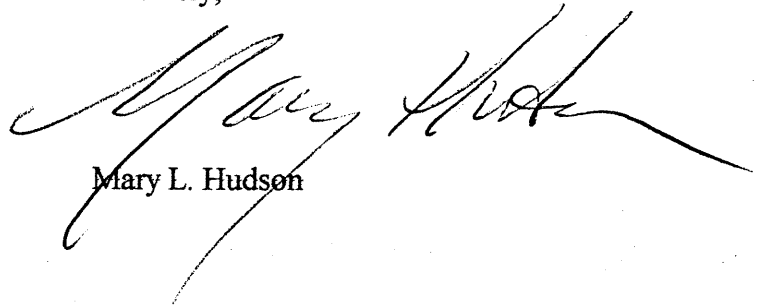 Mary Hudson
Mary L. Hudson